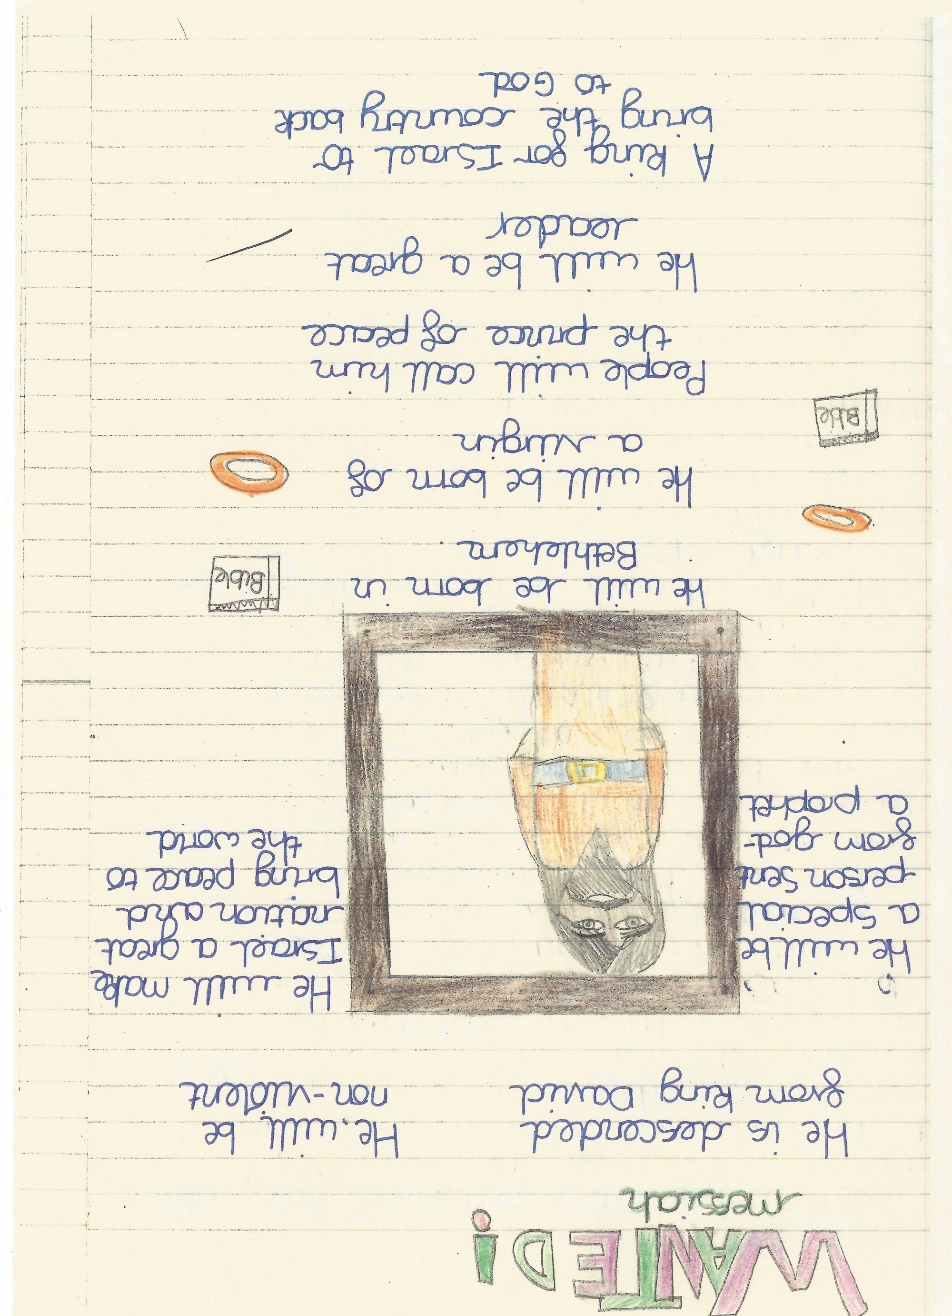 WANTED!
messiah
He is descended
from king David
He will be
non-violent
He will be
a special
person sent
from god-
a prophet
He will make
Israel a great
nation and
bring peace to
the world
He will be born in
Bethlehem.
Bible
He will be born of
a virgin
Bible
People will call him
the prince of peace
He will be a great
leader
A king for Israel to
bring the country back
to God